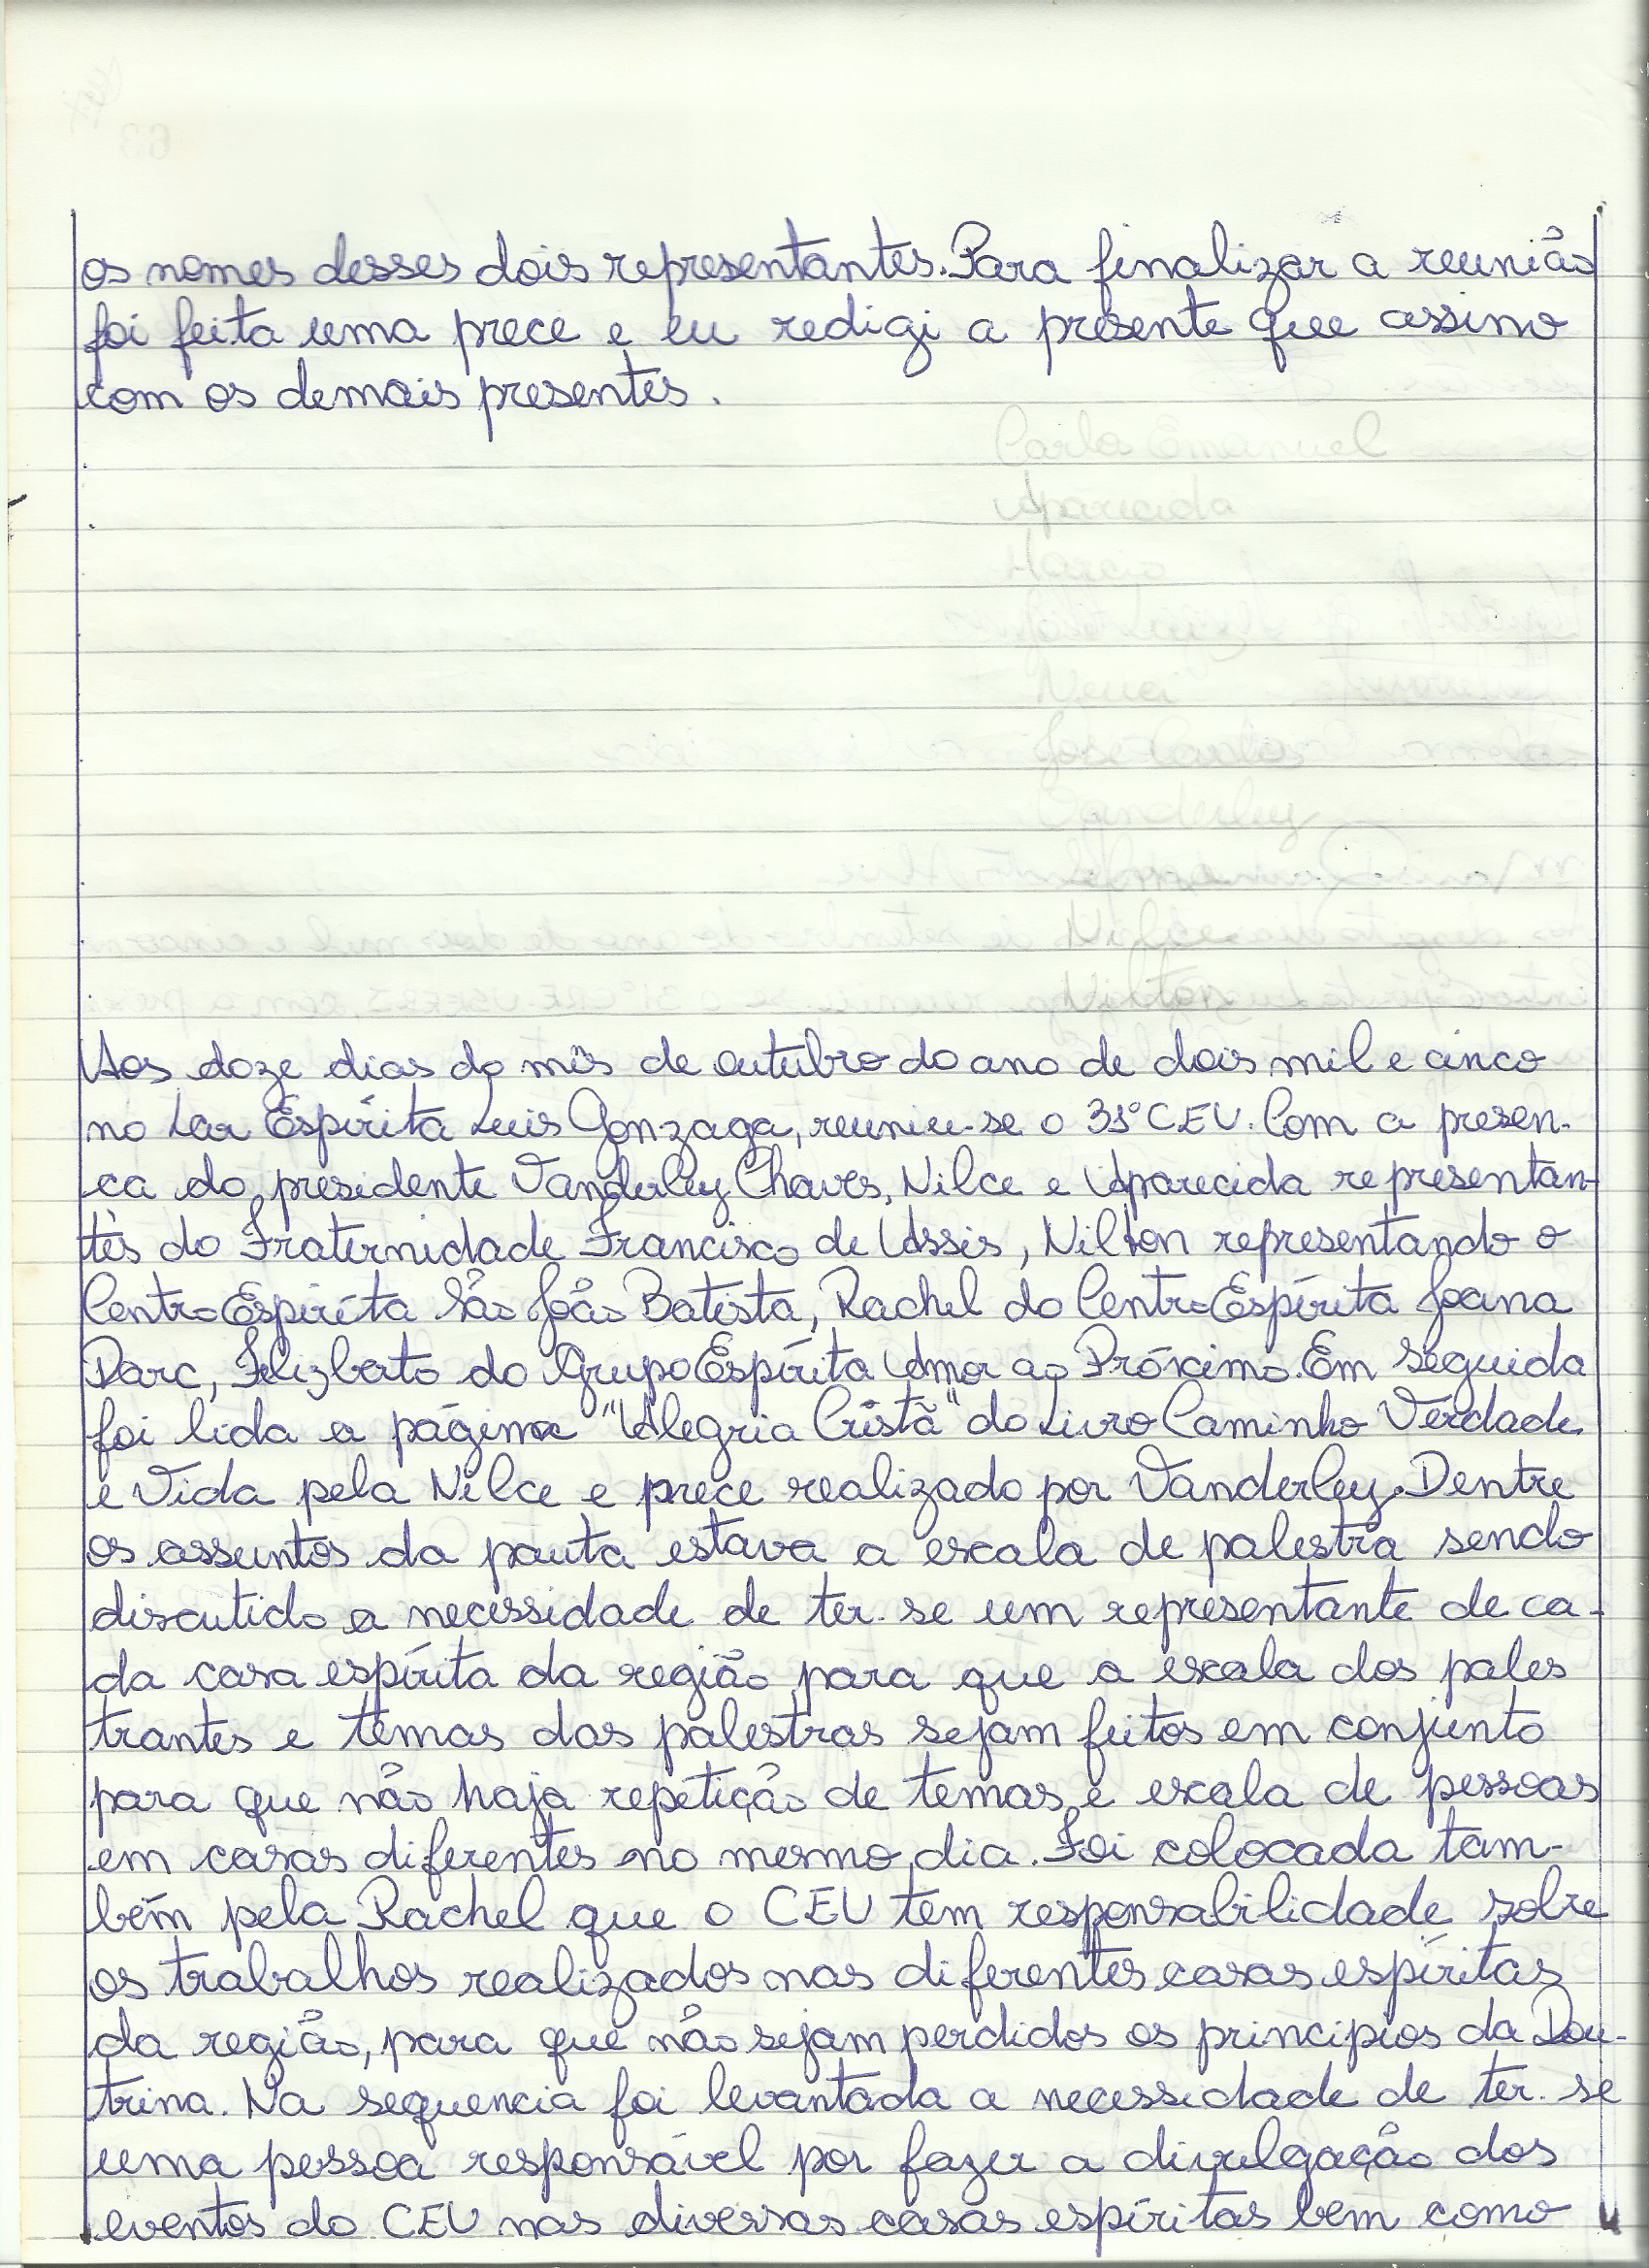 os nomes desses dois representantes. Para finalizar a reunião
foi feita uma prece e eu redigi a presente que assino
com os demais presentes.
Aos doze dias do mês de outubro do ano de dois mil e cinco
no Lar Espírita Luis Gonzaga, reuniu-se o 31º CEU. Com a presen-
ça do presidente Vanderley Chaves, Nilce e Aparecida representan-
tes do Fraternidade Francisco de Assis, Nilton representando o
Centro Espírita São João Batista, Rachel do Centro Espírita Joana
Darc, Felizberto do Grupo Espírita Amor ao Próximo. Em seguida
foi lida a página "Alegria Cristã" do Livro Caminho Verdade
e Vida pela Nilce e prece realizado por Vanderley. Dentre
os assuntos da pauta estava a escala de palestra sendo
discutido a necessidade de ter-se um representante de ca-
da casa espírita da região para que a escala dos pales
trantes e temas das palestras sejam feitos em conjunto
para que não haja repetição de temas e escala de pessoas
em casas diferentes no mesmo dia. Foi colocada tam-
bém pela Rachel que o CEU tem responsabilidade sobre
os trabalhos realizados nas diferentes casas espíritas
da região, para que não sejam perdidos os principios da Dou-
trina. Na sequencia foi levantada a necessidade de ter-se
uma pessoa responsável por fazer a divulgação dos
eventos do CEU nas diversas casas espíritas bem como